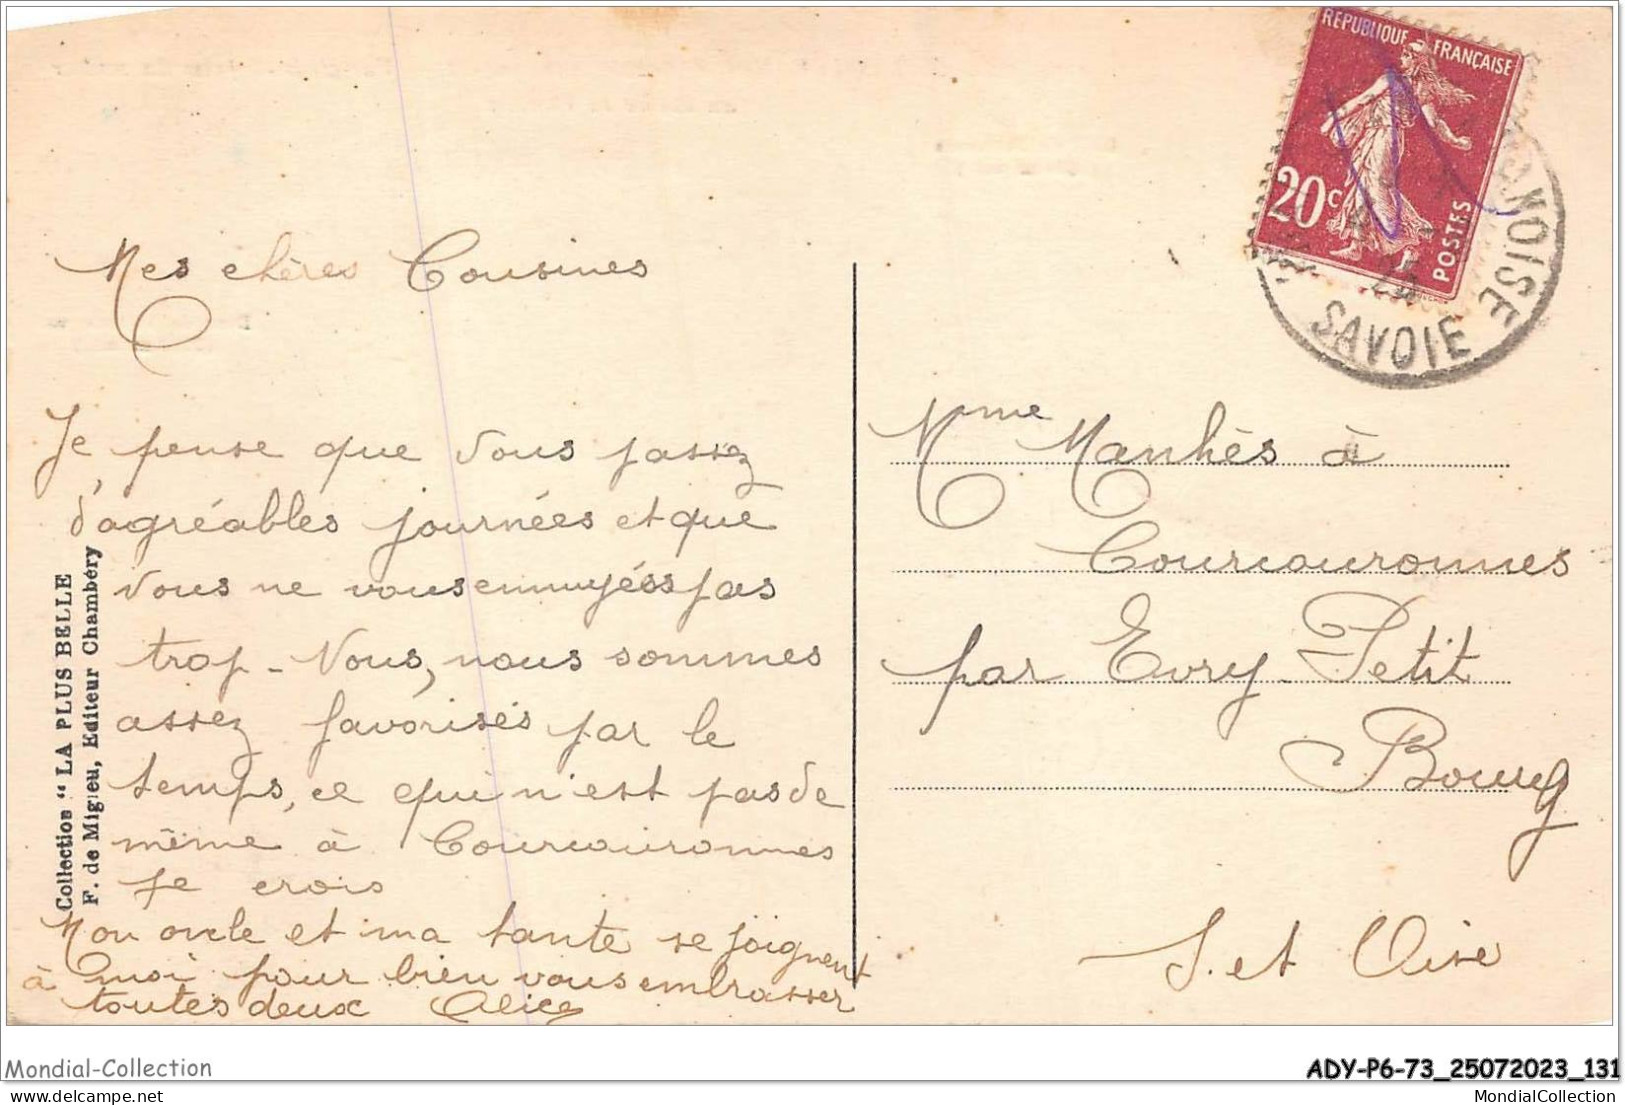 Mes chères Cousines
Je pense que vous passez
d'agréables journées et que
vous ne vous ennuyéss pas
trop - Nous, nous sommes
assez favorisés par le
temps, ce qui n'est pas de
même à Courcouronnes
je crois
Mon oncle et ma tante se joignent
à moi pour bien vous embrasser
toutes deux Alice
Collection "LA PLUS BELLE
F. de Migieu, Editeur Chambéry
REPUBLIQUE FRANÇAISE
20c
POSTES
25
SAVOIE
Mme Manhès à
Courcouronnes
par Evry-Petit
Bourg
S. et Oise
Mondial-Collection
ADY-P6-73_25072023_131
www.delcampe.net
MondialCollection